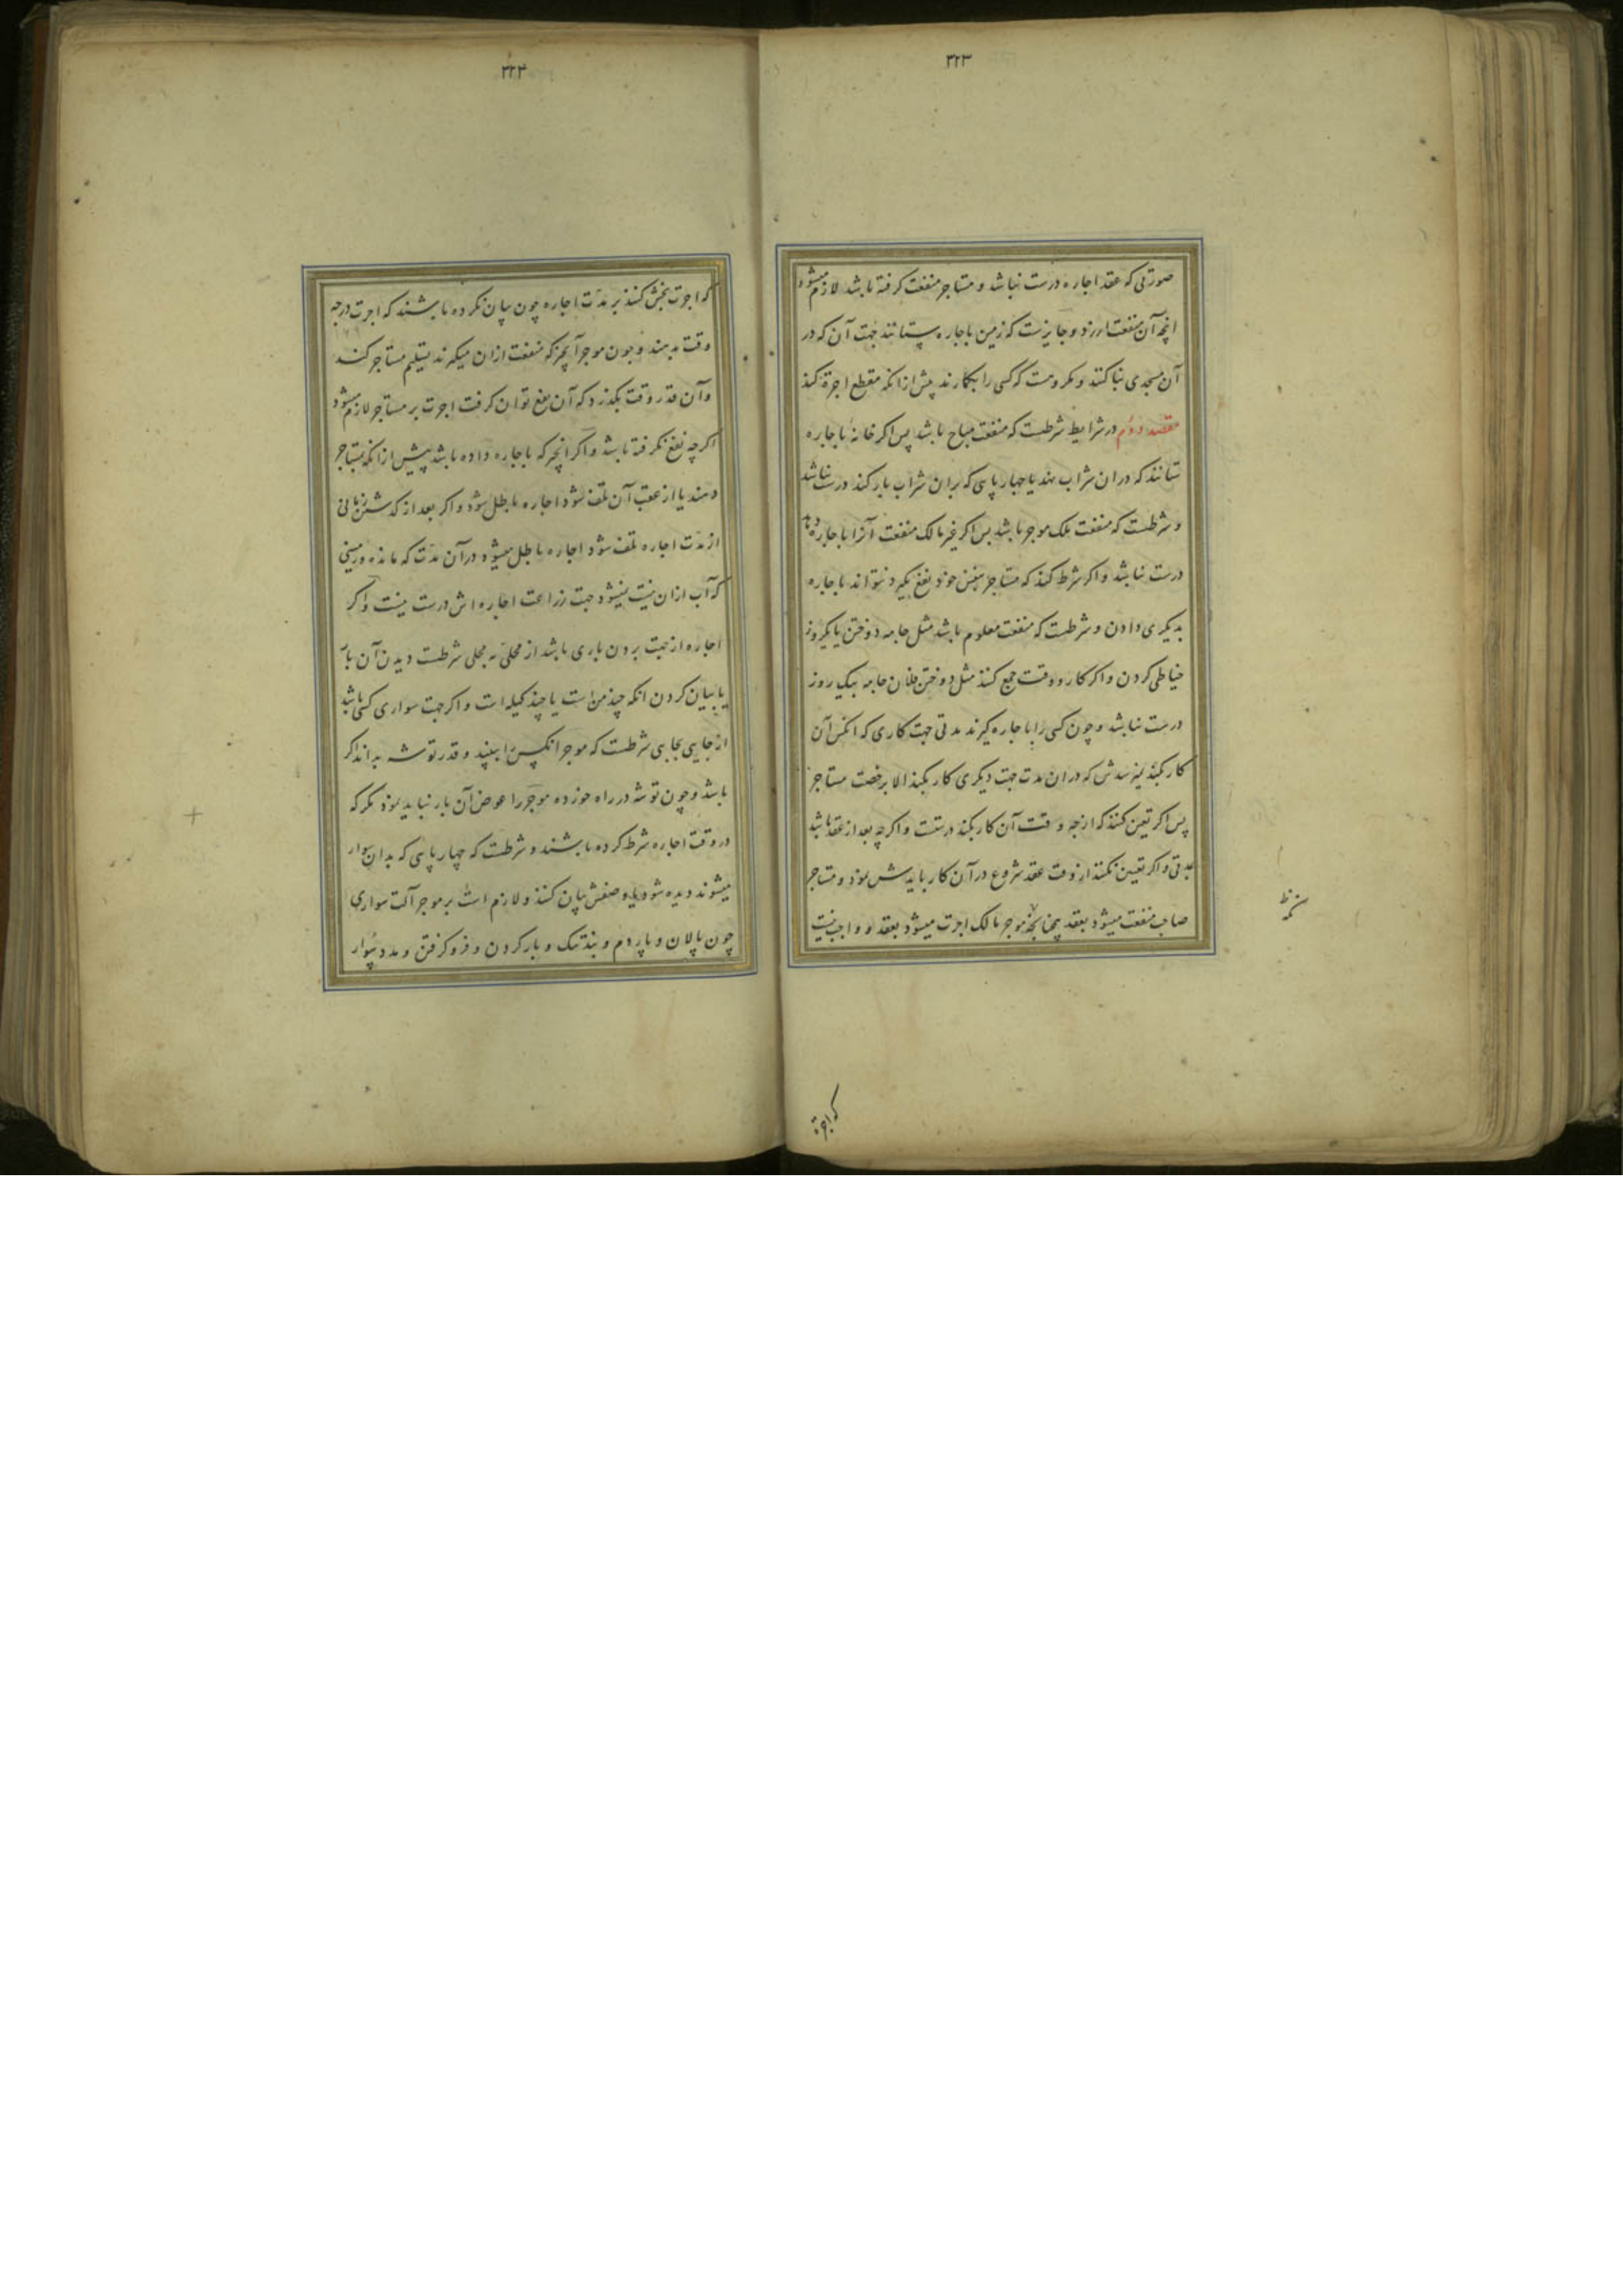 ۳۲۳
صورتی که عقد اجاره درست نباشد و مستاجر منفعت کرفته باشد لازم میشود
انچه آن منفعت ارزد و جایزست که زمین باجاره بستانند جهت آن که در
آن مسجدی بنا کنند و مکروهست که کسی را بکار دارند پیش از انکه مقطع اجرة کنند
مقصد دوم در شرایط شرطست که منفعت مباح باشد پس اکر خانه باجاره
ستانند که دران شراب نهند یا چهارپایی که بران شراب بار کنند درست نباشد
و شرطست که منفعت ملک موجر باشد پس اکر غیر مالک منفعت آنرا باجاره دهد
درست نباشد و اکر شرط کنند که مستاجر بنفس خود نفع بکیرد نتواند باجاره
بدیکری دادن و شرطست که منفعت معلوم باشد مثل جامه دوختن یا یکروز
خیاطی کردن و اکر کار و وقت جمع کنند مثل دوختن فلان جامه بیک روز
درست نباشد و چون کسی را باجاره کیرند مدتی جهت کاری که انکس آن
کار بکند نمیرسدش که دران مدت جهت دیکری کار بکند الا برخصت مستاجر
پس اکر تعین کنند که ازچه وقت آن کار بکند درستست و اکرچه بعد از عقد باشد
بمدتی و اکر تعیین نکنند از وقت عقد شروع در آن کار بایدش نمود و مستاجر
صاحب منفعت میشود بعقد همچنانکه موجر مالک اجرت میشود بعقد و واجب نیست
که اجرة
۳۲۴
که اجرت بخش کنند بر مدت اجاره چون بیان نکرده باشند که اجرت درچه
وقت بدهند و چون موجر آنچیز که منفعت ازان میکیرند تسلیم مستاجر کند
و آن قدر وقت بکذرد که آن نفع توان کرفت اجرت بر مستاجر لازم میشود
اکرچه نفع نکرفته باشد و اکر انچیز که باجاره داده باشد پیش از انکه بمستاجر
دهند یا از عقب آن تلف شود اجاره باطل شود و اکر بعد از کذشتن زمانی
از مدت اجاره تلف شود اجاره باطل میشود در آن مدت که مانده و زمینی
که آب ازان نمیشود جهت زراعت اجاره اش درست نیست و اکر
اجاره از جهت بردن باری باشد از محلی به محلی شرطست دیدن آن بار
یا بیان کردن انکه چند من است یا چند کیله است و اکر جهت سواری کسی باشد
از جایی بجایی شرطست که موجر انکس را ببیند و قدر توشه بداند اکر
باشد و چون توشه در راه خورده موجر را عوض آن بار نباید نمود مکر که
در وقت اجاره شرط کرده باشند و شرطست که چهارپایی که بدان سوار
میشوند دیده شود یا وصفش بیان کنند و لازم است بر موجر آلت سواری
چون پالان و پاردم و بند تنک و بار کردن و فرو کرفتن و مدد سوار